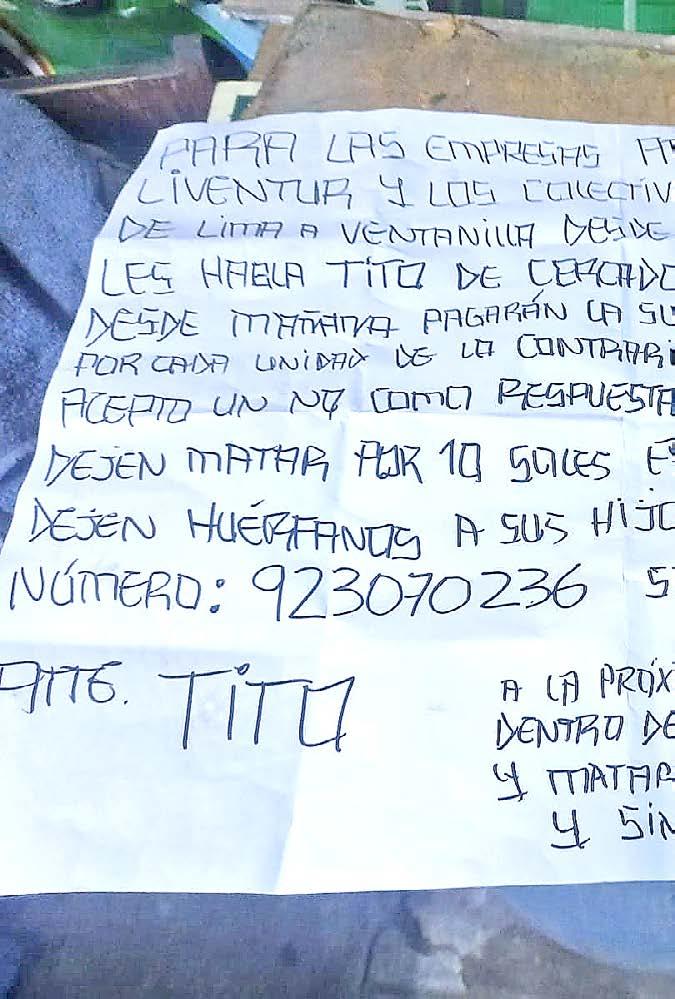 PARA LAS EMPRESAS
LIVENTUR Y LOS COLECTIV
DE LIMA A VENTANILLA DESDE
LES HABLA TITO DE CERCADO
DESDE MAÑANA PAGARÁN LA SU
POR CADA UNIDAD DE LO CONTRARI
ACEPTO UN NO COMO RESPUESTA
DEJEN MATAR POR 10 SOLES
DEJEN HUÉRFANOS A SUS HIJO
NÚMERO: 923070236
ATTE. TITO
A LA PRÓX
DENTRO DE
Y MATAR
Y SIN